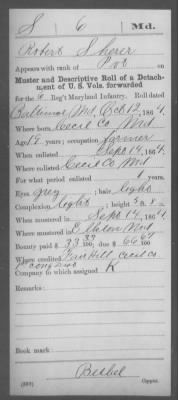 S 6 Md.
Robert Sherer
Appears with rank of Pvt on
Muster and Descriptive Roll of a Detach-
ment of U. S. Vols. forwarded
for the 8 Reg't Maryland Infantry. Roll dated
Baltimore Md Oct 12, 1864.
Where born Cecil Co Md
Age 18 years; occupation farmer
When enlisted Sept 14, 1864.
Where enlisted Cecil Co Md
For what period enlisted 1 years.
Eyes grey; hair light
Complexion light; height 5 ft. 8 in.
When mustered in Sept 14, 1864.
Where mustered in Md
Bounty paid $ 33 33/100; due $ 66 67/100
Where credited Fair Hill, Cecil Co
1st Cong Dist
Company to which assigned K
Remarks:
Book mark:
Copyist.